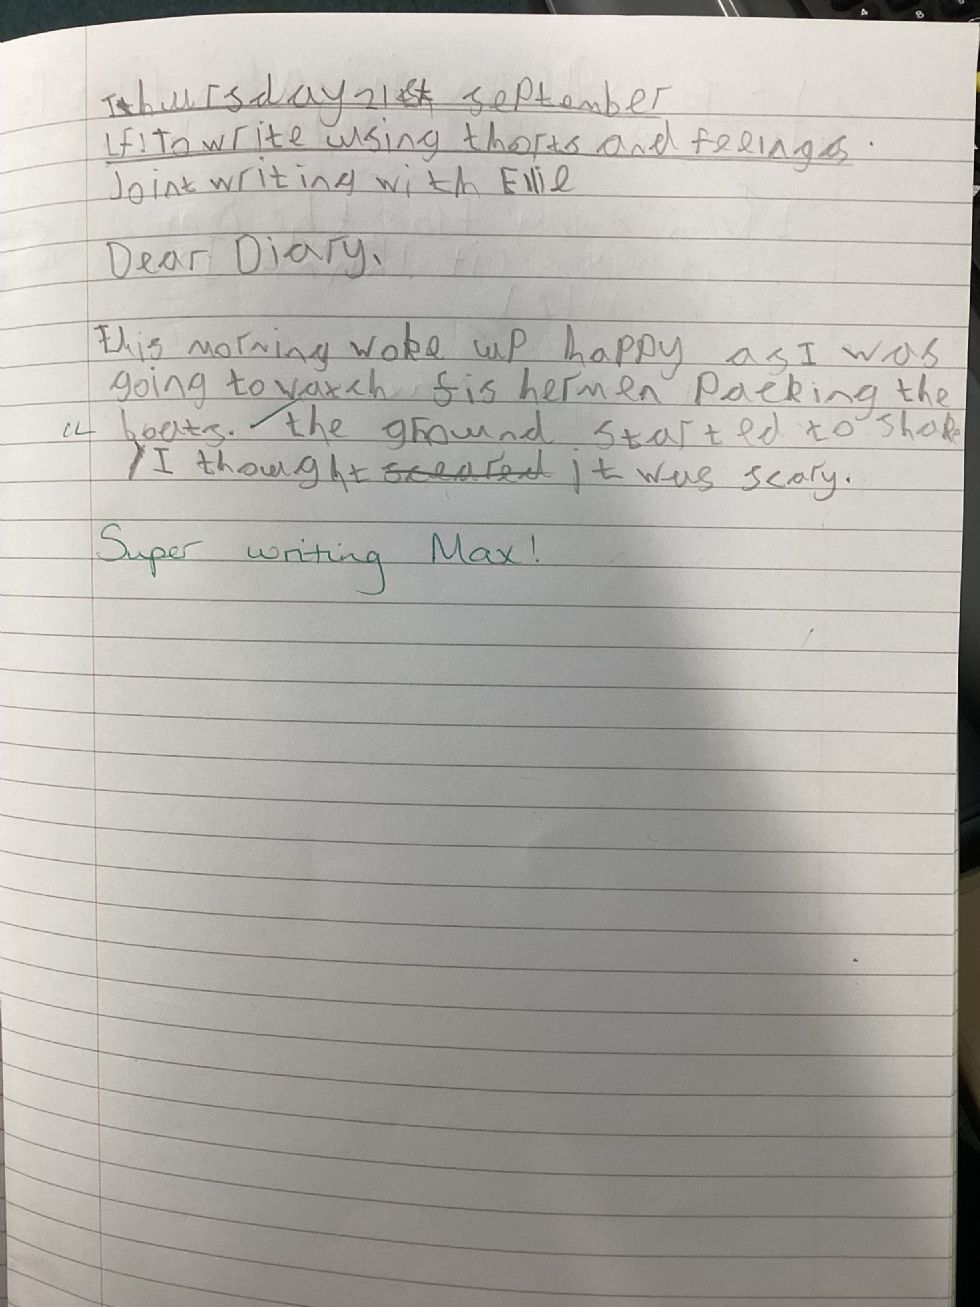 Thursday 21st september
lf! To write using thorts and feelings.
Joint writing with Ellie
Dear Diary,
this morning woke up happy as I was
going to watch fishermen Packing the
boats. the ground started to shake
I thought scared it was scary.
Super writing Max!